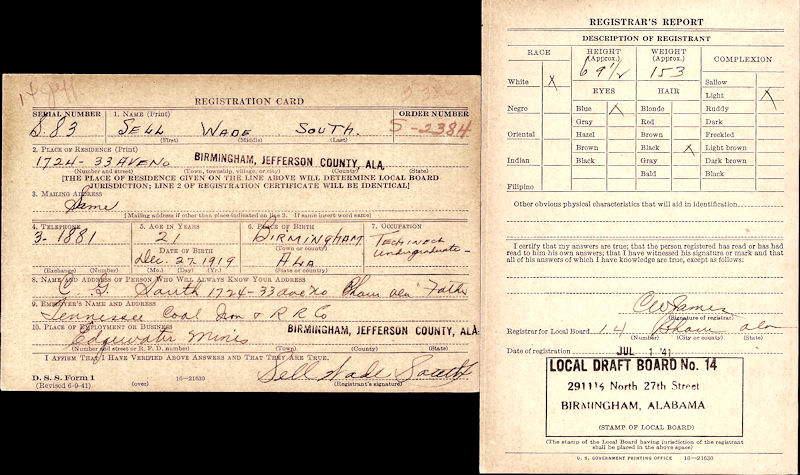 REGISTRATION CARD
SERIAL NUMBER 1. NAME (Print) ORDER NUMBER
S. 83 SELL WADE SOUTH. S-2384
(First) (Middle) (Last)
2. PLACE OF RESIDENCE (Print)
1724-33 AVE NO BIRMINGHAM, JEFFERSON COUNTY, ALA.
(Number and street) (Town, township, village, or city) (County) (State)
[THE PLACE OF RESIDENCE GIVEN ON THE LINE ABOVE WILL DETERMINE LOCAL BOARD
JURISDICTION; LINE 2 OF REGISTRATION CERTIFICATE WILL BE IDENTICAL]
3. MAILING ADDRESS
Same
[Mailing address if other than place indicated on line 2. If same insert word same]
4. TELEPHONE 5. AGE IN YEARS 6. PLACE OF BIRTH 7. OCCUPATION
3-1881 21 BIRMINGHAM
DATE OF BIRTH (Town or county)
Undergraduate-
Dec. 27 1919 ALA
(Exchange) (Number) (Mo.) (Day) (Yr.) (State or country)
8. NAME AND ADDRESS OF PERSON WHO WILL ALWAYS KNOW YOUR ADDRESS
South 1724-33 ave no Bham ala Father
9. EMPLOYER'S NAME AND ADDRESS
Tennessee Coal Iron & R R Co
10. PLACE OF EMPLOYMENT OR BUSINESS
Edgewater Mines BIRMINGHAM, JEFFERSON COUNTY, ALA
(Number and street or R. F. D. number) (Town) (County) (State)
I AFFIRM THAT I HAVE VERIFIED ABOVE ANSWERS AND THAT THEY ARE TRUE.
Sell Wade South
D. S. S. Form 1
(Revised 6-9-41) (over) 16-21630 (Registrant's signature)
REGISTRAR'S REPORT
DESCRIPTION OF REGISTRANT
RACE HEIGHT (Approx.) WEIGHT (Approx.) COMPLEXION
69½ 153
EYES HAIR
White X Sallow
Light X
Negro Blue X Blonde Ruddy
Gray Red Dark
Oriental Hazel Brown Freckled
Brown Black X Light brown
Indian Black Gray Dark brown
Bald Black
Filipino
Other obvious physical characteristics that will aid in identification
I certify that my answers are true; that the person registered has read or has had
read to him his own answers; that I have witnessed his signature or mark and that
all of his answers of which I have knowledge are true, except as follows:
CW James
(Signature of registrar)
Registrar for Local Board 14 Bham ala
(Number) (City or county) (State)
Date of registration JUL 1 '41
LOCAL DRAFT BOARD No. 14
2911½ North 27th Street
BIRMINGHAM, ALABAMA
(STAMP OF LOCAL BOARD)
(The stamp of the Local Board having jurisdiction of the registrant
shall be placed in the above space)
U. S. GOVERNMENT PRINTING OFFICE 16-21630